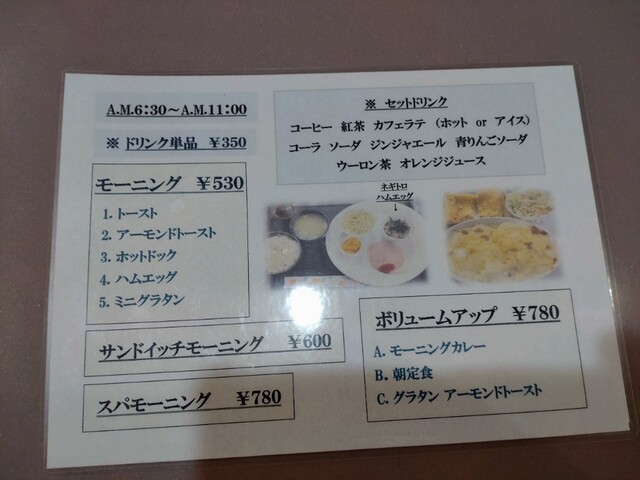 A.M.6:30～A.M.11:00
※ ドリンク単品 ￥350
※ セットドリンク
コーヒー 紅茶 カフェラテ (ホット or アイス)
コーラ ソーダ ジンジャエール 青りんごソーダ
ウーロン茶 オレンジジュース
モーニング ￥530
1. トースト
2. アーモンドトースト
3. ホットドック
4. ハムエッグ
5. ミニグラタン
ネギトロ
ハムエッグ
↓
サンドイッチモーニング ￥600
スパモーニング ￥780
ボリュームアップ ￥780
A. モーニングカレー
B. 朝定食
C. グラタン アーモンドトースト